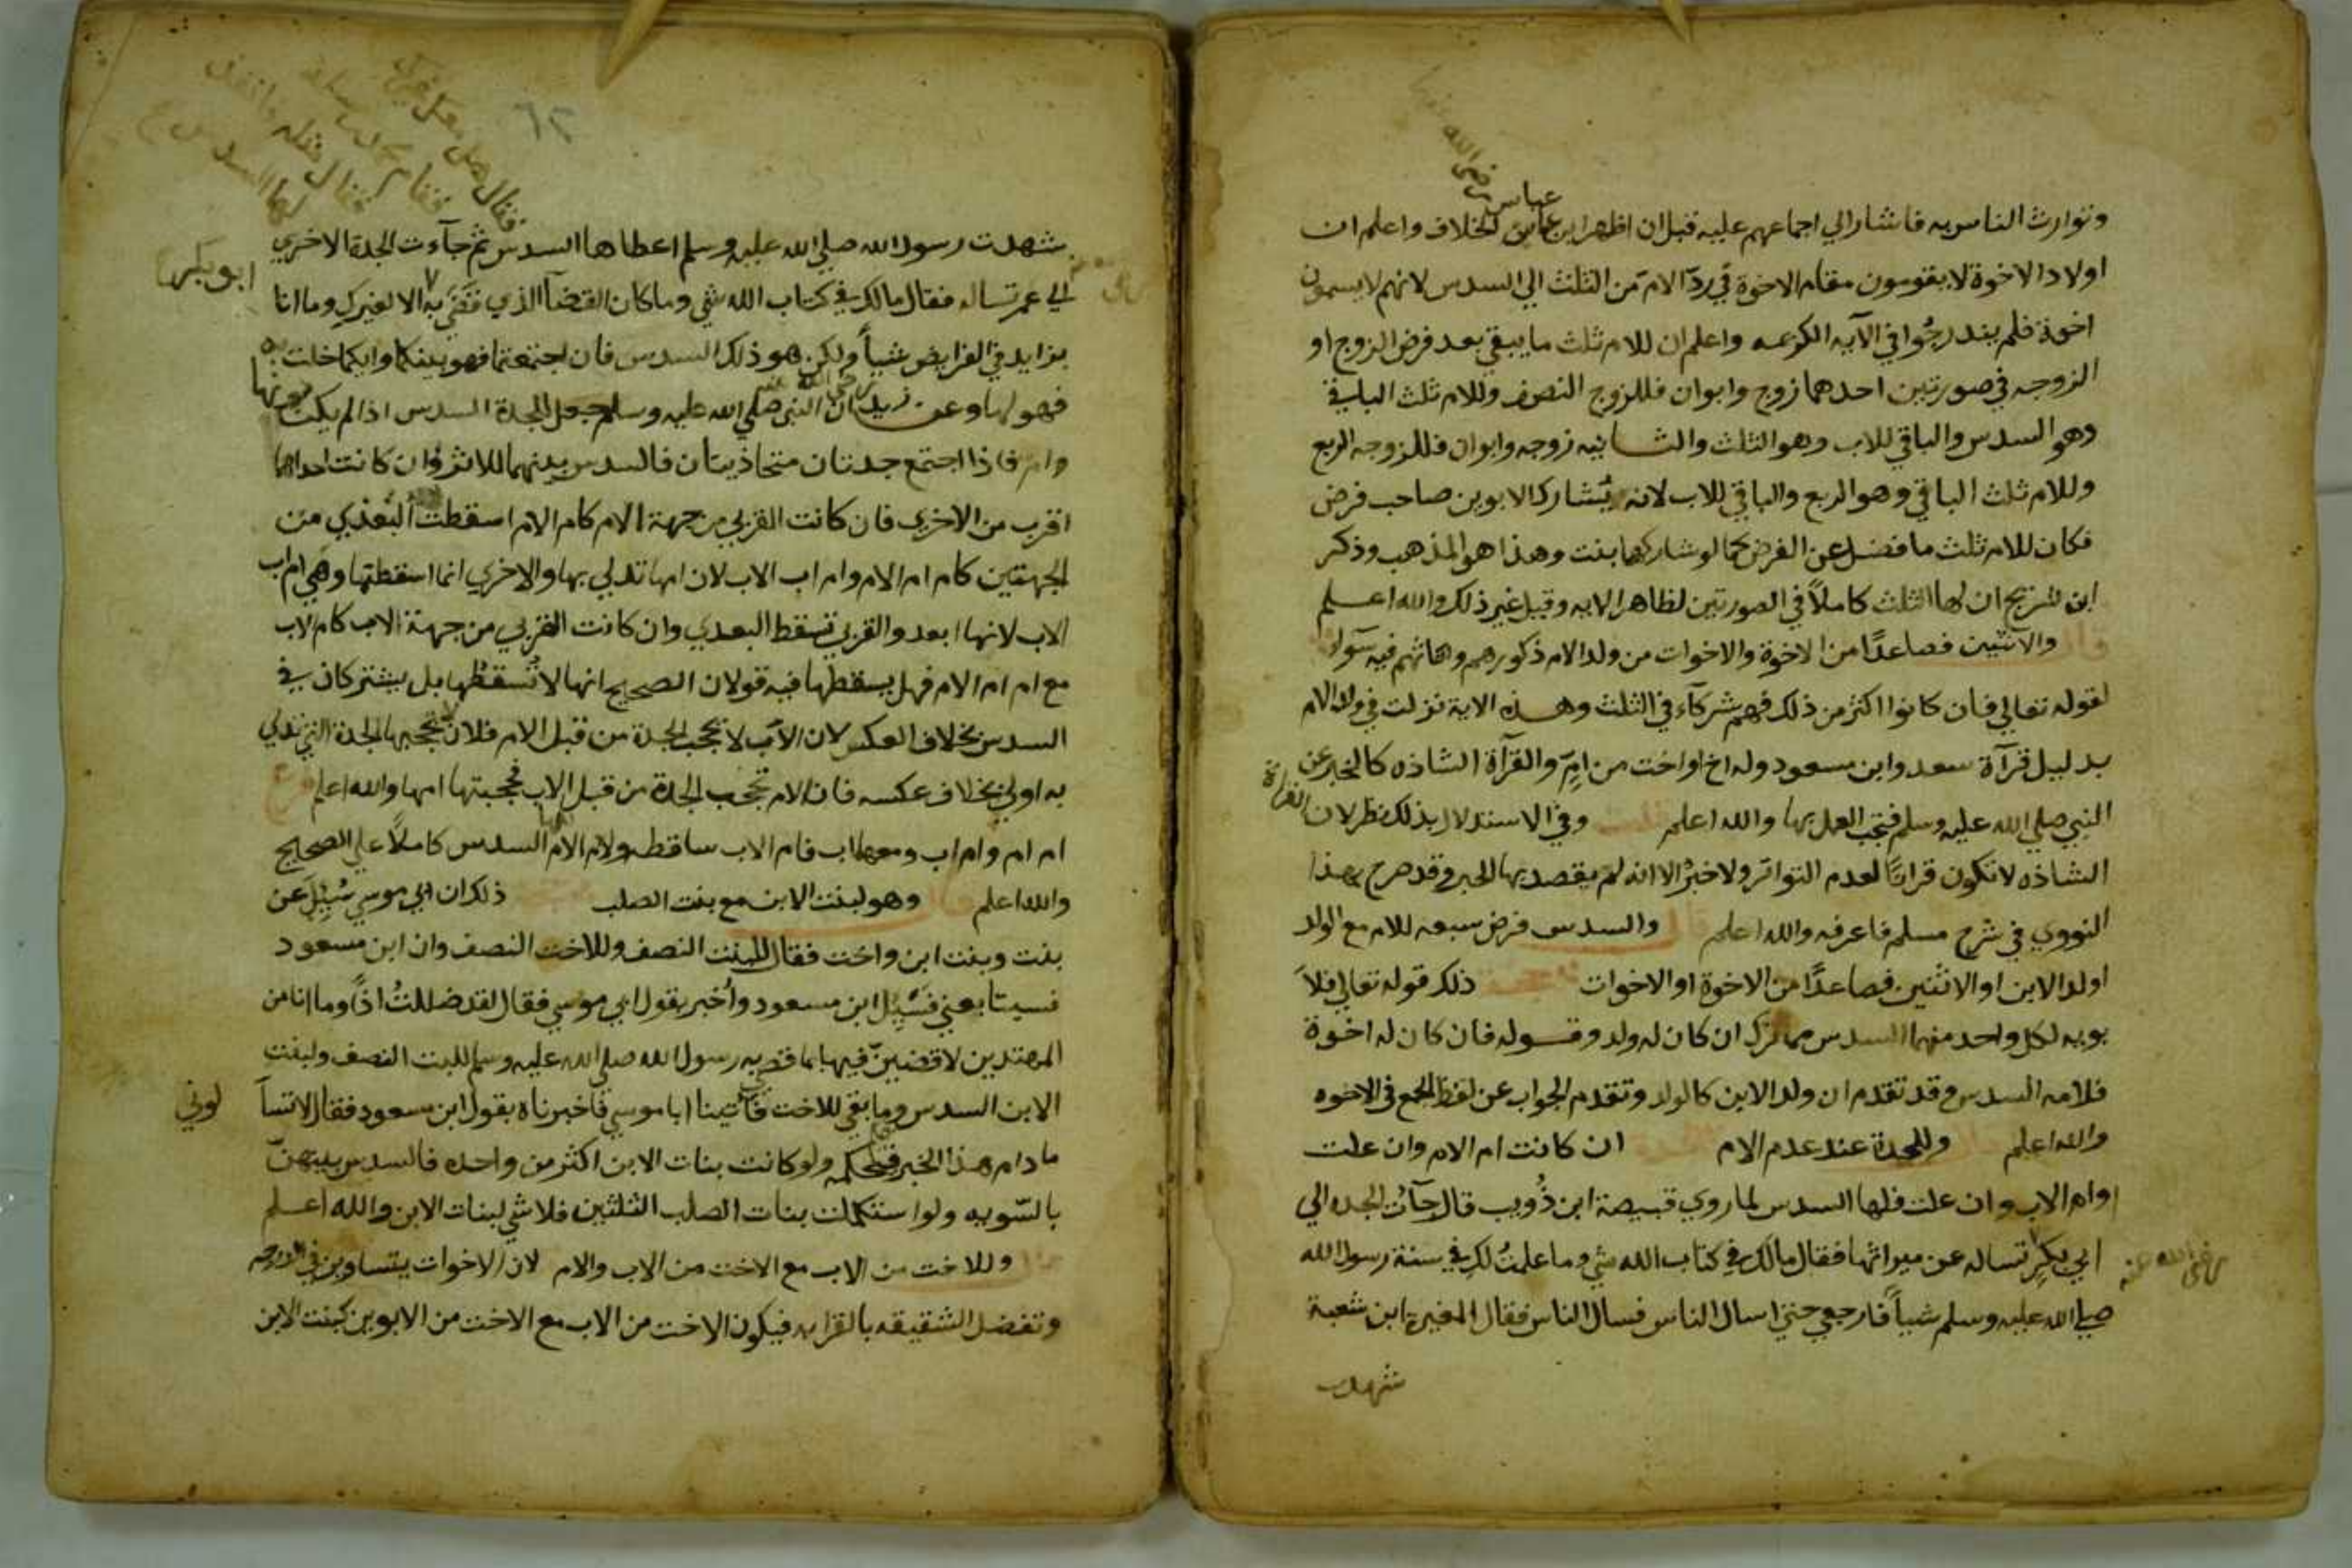 عباس رضي الله
وتوارث الناس به فاشار الي اجماعهم عليه قبل ان اظهر ابن عباس الخلاف واعلم ان
اولاد الاخوة لا يقومون مقام الاخوة في ردّ الام من الثلث الي السدس لانهم لا يسمون
اخوة فلم يندرجُوا في الآيه الكريمه واعلم ان للام ثلث ما يبقي بعد فرض الزوج او
الزوجه في صورتين احدهما زوج وابوان فللزوج النصف وللام ثلث الباقي
وهو السدس والباقي للاب وهو الثلث والثانيه زوجه وابوان فللزوجه الربع
وللام ثلث الباقي وهو الربع والباقي للاب لانه يُشارك الابوين صاحب فرض
فكان للام ثلث ما فضل عن الفرض كما لو شاركها بنت وهذا هو المذهب وذكر
ابن شريح ان لها الثلث كاملاً في الصورتين لظاهر الايه وقيل غير ذلك والله اعلم
والاثنين فصاعدًا من الاخوة والاخوات من ولد الام ذكورهم واناثهم فيه سوآء
لقوله تعالي فان كانوا اكثر من ذلك فهم شركآء في الثلث وهذه الاية نزلت في ولد الام
بدليل قرآة سعد وابن مسعود وله اخ او اخت من امٍ والقرآة الشاذه كالخبر عن
النبي صلي الله عليه وسلم فيجب العمل بها والله اعلم قلت وفي الاستدلال بذلك نظر لان القراة
الشاذه لا تكون قرانًا لعدم التواتر ولا خبرًا لانه لم يقصد بها الخبر وقد صرح بهذا
النووي في شرح مسلم فاعرفه والله اعلم قال والسدس فرض سبعه للام مع الولد
اولد الابن او الاثنين فصاعدًا من الاخوة او الاخوات ذلك قوله تعالي فلاَ
بويه لكل واحد منهما السدس مما ترك ان كان له ولد وقوله فان كان له اخوة
فلامه السدس وقد تقدم ان ولد الابن كالولد وتقدم الجواب عن لفظ الجمع في الاخوه
والله اعلم وللجدة عند عدم الام ان كانت ام الام وان علت
وام الاب وان علت فلها السدس لما روي قبيصة ابن ذُويب قال جآت الجده الي
ابي بكرٍ تساله عن ميراثها فقال مالك في كتاب الله شي وما علمتُ لك في سنة رسول الله
رضي الله عنه
صلي الله عليه وسلم شياً فارجعي حتي اسال الناس فسال الناس فقال المغيرة ابن شعبة
شهدت
٦٢
فقال هل معك غيرك
فقام محمد بن مسلمة
فقال مثله
لها السدس
شهدت رسول الله صلي الله عليه وسلم اعطاها السدس ثم جآءت الجدة الاخري
ابو بكر
الي عمر تساله فقال مالك في كتاب الله شي وما كان القضآ الذي قضي به الا لغيرك وما انا
بزايد في الفرايض شيأً ولكن هو ذلك السدس فان اجتمعتما فهو بينكما وايكما خلت به
فهو لها وعن زيد رضي الله عنه ان النبي صلي الله عليه وسلم جعل للجدة السدس اذا لم يكن دونها
وام فاذا اجتمع جدتان متحاذيتان فالسدس بينهما للاثر وان كانت احداهما
اقرب من الاخري فان كانت القربي من جهة الام كام الام اسقطت البُعدي من
الجهتين كام ام الام وام اب الاب لان امها تدلي بها والاخري انما اسقطتها وهي ام اب
الاب لانها ابعد والقربي تسقط البعدي وان كانت القربي من جهة الاب كام الاب
مع ام ام الام فهل يسقطها فيه قولان الصحيح انها لا تُسقطها بل يشتركان في
السدس بخلاف العكس لان الاب لا تحجب الجدة من قبل الام فلان لا تحجبها الجدة التي تدلي
به اولي بخلاف عكسه فان الام تحجب الجدة من قبل الاب فحجبتها امها والله اعلم فرع
ام ام وام اب ومعها اب فام الاب ساقطه ولام الام السدس كاملاً علي الصحيح
والله اعلم قال وهو لبنت الابن مع بنت الصلب ذلك ان ابي موسي سُيِلَ عن
بنت وبنت ابن واخت فقال للبنت النصف وللاخت النصف وان ابن مسعود
فسيتابعني فسُيِل ابن مسعود واُخبر بقول ابي موسي فقال لقد ضللتُ اذًا وما انا من
المهتدين لاقضينّ فيها بما قضي به رسول الله صلي الله عليه وسلم للبنت النصف ولبنت
الابن السدس وما بقي للاخت فاتينا ابا موسي فاخبرناه بقول ابن مسعود فقال لا تسآ
لوني
ما دام هذا الحبر فيكم ولو كانت بنات الابن اكثر من واحده فالسدس بينهنّ
بالسّويه ولو استكملت بنات الصلب الثلثين فلا شي لبنات الابن والله اعلم
قال وللاخت من الاب مع الاخت من الاب والام لان الاخوات يتساوين في الدرجه
وتفضل الشقيقه بالقرابه فيكون الاخت من الاب مع الاخت من الابوين كبنت الابن